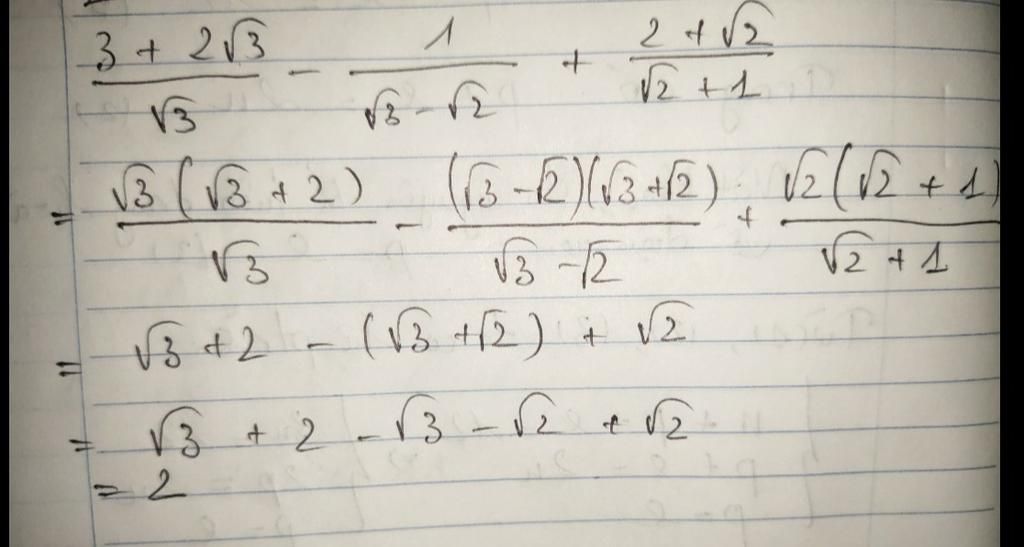 (3 + 2√3)/√3 - 1/(√3 - √2) + (2 + √2)/(√2 + 1)
= √3(√3 + 2)/√3 - (√3 - √2)(√3 + √2)/(√3 - √2) + √2(√2 + 1)/(√2 + 1)
= √3 + 2 - (√3 + √2) + √2
= √3 + 2 - √3 - √2 + √2
= 2